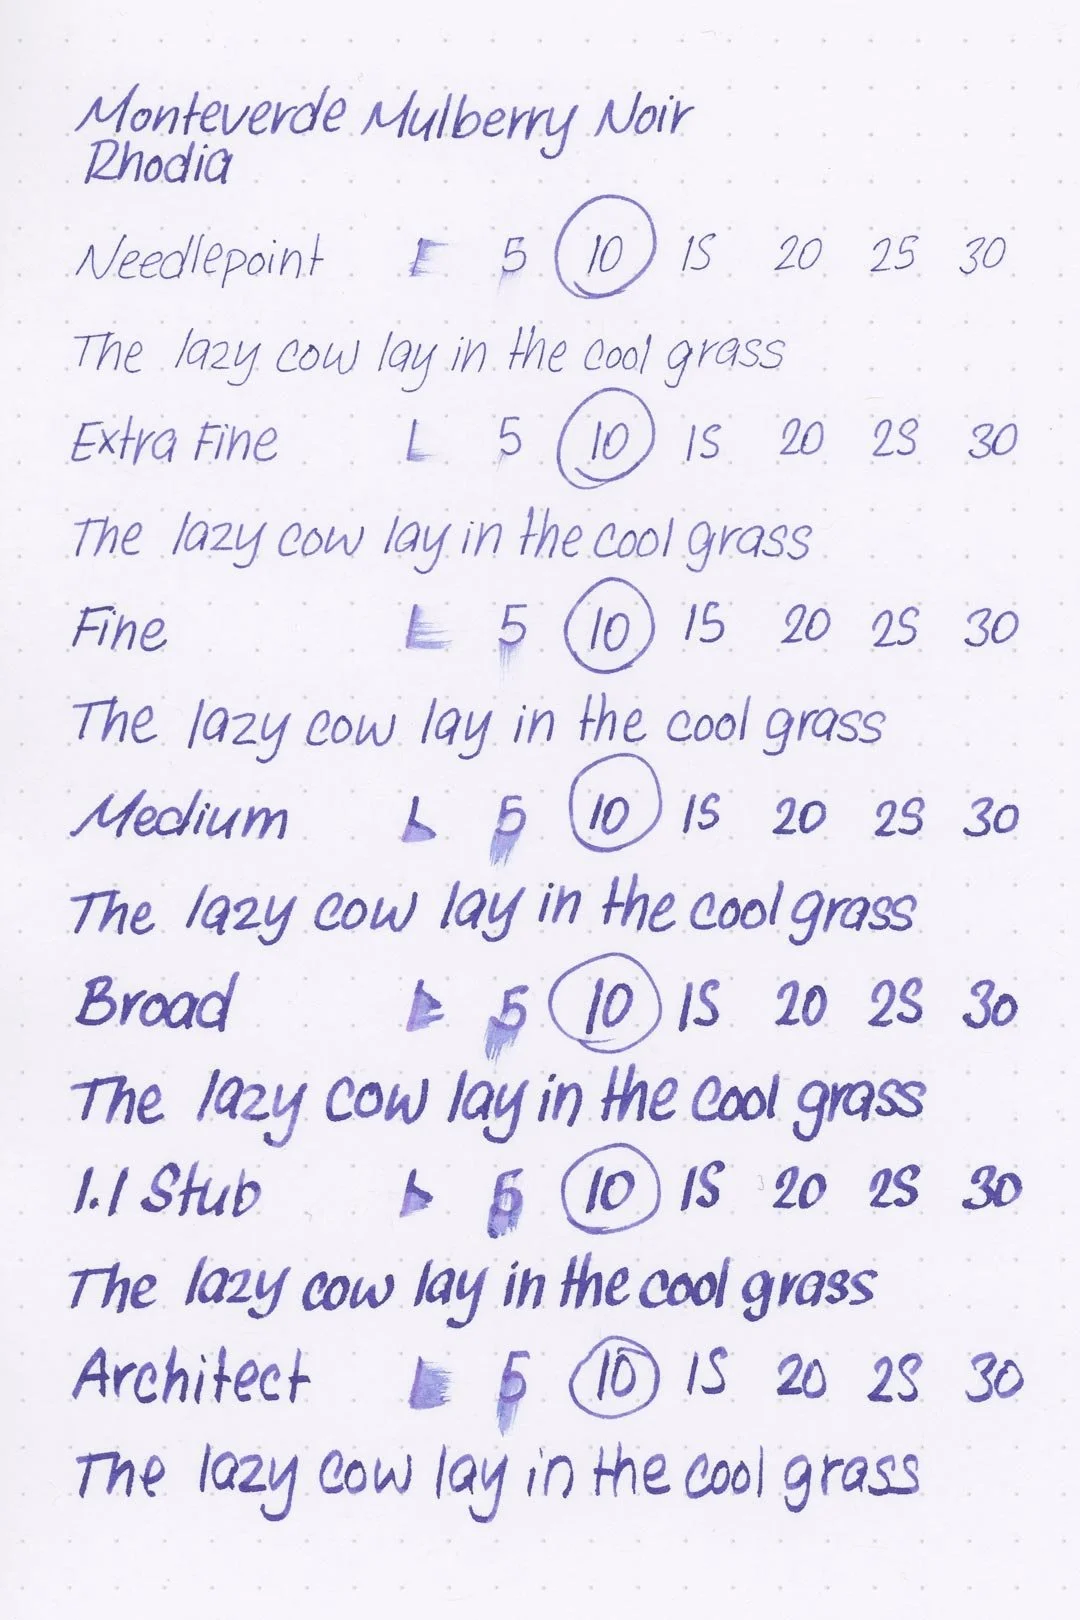 Monteverde Mulberry Noir
Rhodia
Needlepoint L 5 10 15 20 25 30
The lazy cow lay in the cool grass
Extra Fine L 5 10 15 20 25 30
The lazy cow lay in the cool grass
Fine L 5 10 15 20 25 30
The lazy cow lay in the cool grass
Medium L 5 10 15 20 25 30
The lazy cow lay in the cool grass
Broad L 5 10 15 20 25 30
The lazy cow lay in the cool grass
1.1 Stub L 5 10 15 20 25 30
The lazy cow lay in the cool grass
Architect L 5 10 15 20 25 30
The lazy cow lay in the cool grass